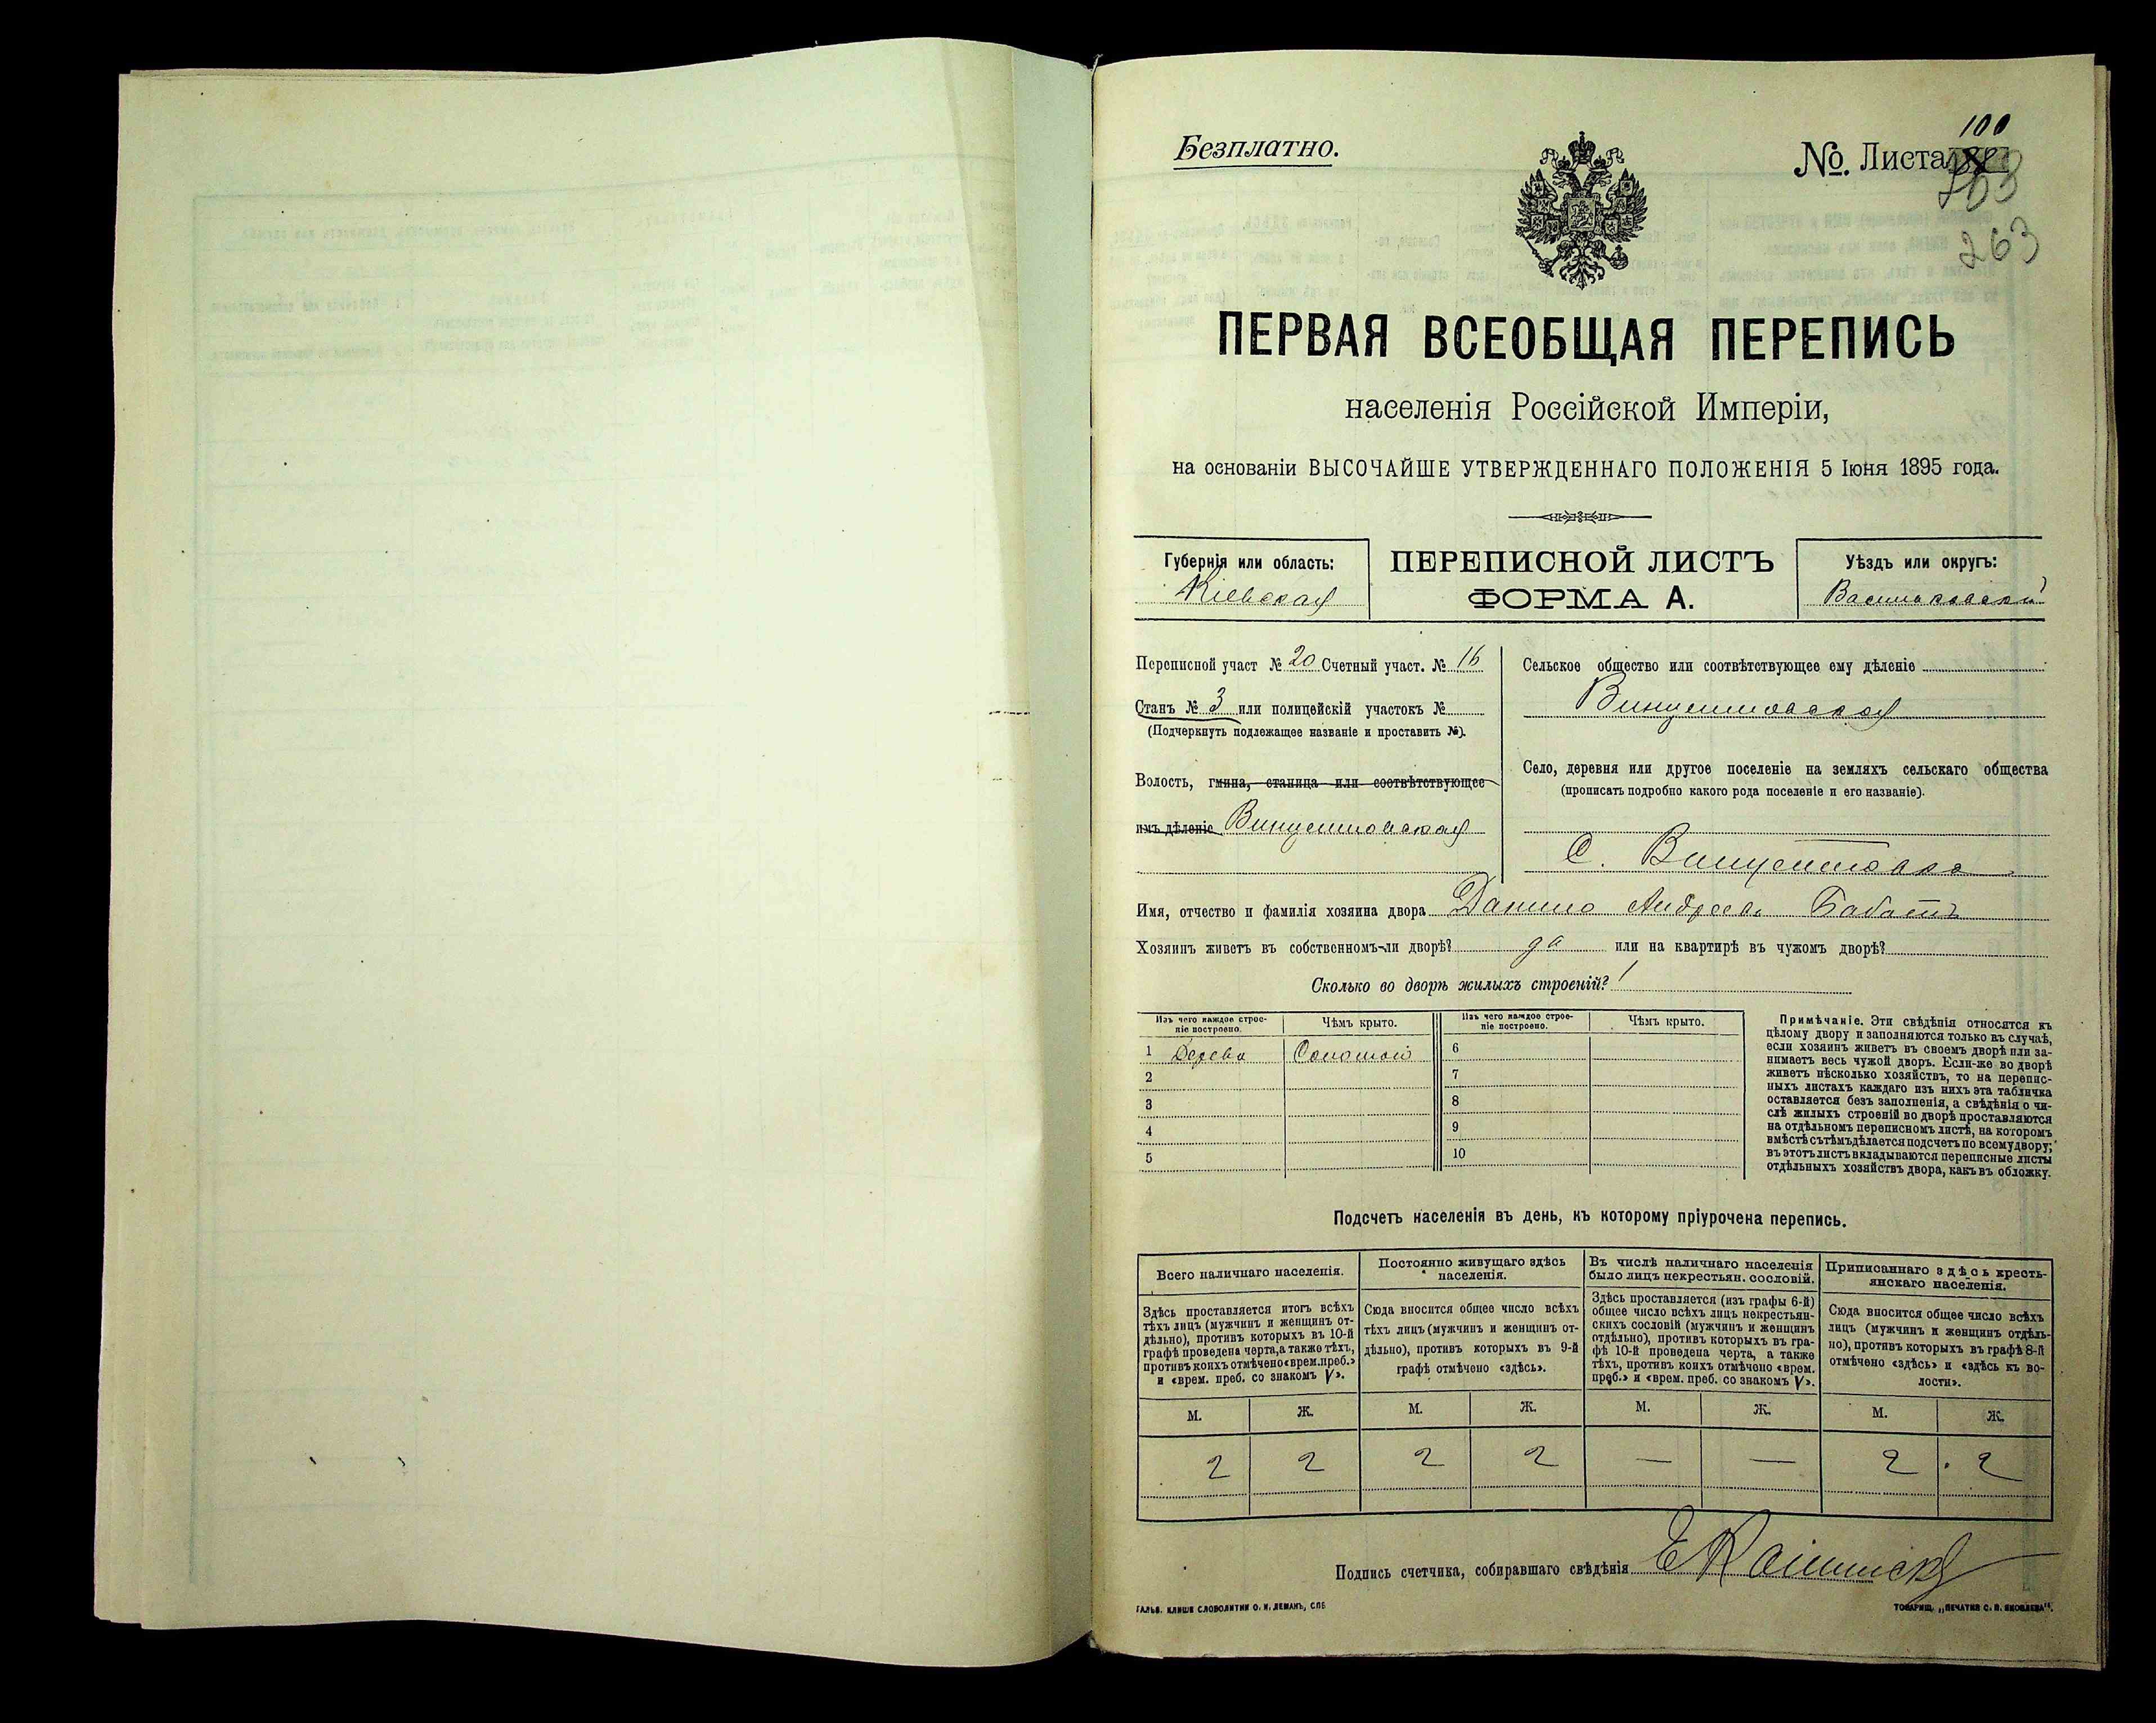 Безплатно.
100
№. Листа
263
ПЕРВАЯ ВСЕОБЩАЯ ПЕРЕПИСЬ
населенія Россійской Имперіи,
на основаніи ВЫСОЧАЙШЕ УТВЕРЖДЕННАГО ПОЛОЖЕНІЯ 5 Іюня 1895 года.
Губернія или область:
Кіевская
ПЕРЕПИСНОЙ ЛИСТЪ
ФОРМА А.
Уѣздъ или округъ:
Васильковскій
Переписной участ № 20 Счетный участ. № 16
Станъ № 3 или полицейскій участокъ №
(Подчеркнуть подлежащее названіе и проставить №).
Волость, гмина, станица или соотвѣтствующее
имъ дѣленіе Винцентовская
Сельское общество или соотвѣтствующее ему дѣленіе
Винцентовская
Село, деревня или другое поселеніе на земляхъ сельскаго общества
(прописать подробно какого рода поселеніе и его названіе).
С. Винцентовка
Имя, отчество и фамилія хозяина двора Данило Андреевъ
Хозяинъ живетъ въ собственномъ-ли дворѣ? да или на квартирѣ въ чужомъ дворѣ?
Сколько во дворѣ жилыхъ строеній? 1
Изъ чего каждое строе-
ніе построено.
Чѣмъ крыто.
Изъ чего каждое строе-
ніе построено.
Чѣмъ крыто.
1 Дерева Соломой
2
3
4
5
6
7
8
9
10
Примѣчаніе. Эти свѣдѣнія относятся къ
цѣлому двору и заполняются только въ случаѣ,
если хозяинъ живетъ въ своемъ дворѣ или за-
нимаетъ весь чужой дворъ. Если-же во дворѣ
живетъ нѣсколько хозяйствъ, то на перепис-
ныхъ листахъ каждаго изъ нихъ эта табличка
оставляется безъ заполненія, а свѣдѣнія о чи-
слѣ жилыхъ строеній во дворѣ проставляются
на отдѣльномъ переписномъ листѣ, на которомъ
вмѣстѣ съ тѣмъ дѣлается подсчетъ по всему двору;
въ этотъ листъ вкладываются переписные листы
отдѣльныхъ хозяйствъ двора, какъ въ обложку.
Подсчетъ населенія въ день, къ которому пріурочена перепись.
Всего наличнаго населенія.
Здѣсь проставляется итогъ всѣхъ
тѣхъ лицъ (мужчинъ и женщинъ от-
дѣльно), противъ которыхъ въ 10-й
графѣ проведена черта, а также тѣхъ,
противъ коихъ отмѣчено «врем. преб.»
и «врем. преб. со знакомъ V».
Постоянно живущаго здѣсь
населенія.
Сюда вносится общее число всѣхъ
тѣхъ лицъ (мужчинъ и женщинъ от-
дѣльно), противъ которыхъ въ 9-й
графѣ отмѣчено «здѣсь».
Въ числѣ наличнаго населенія
было лицъ некрестьян. сословій.
Здѣсь проставляется (изъ графы 6-й)
общее число всѣхъ лицъ некрестьян-
скихъ сословій (мужчинъ и женщинъ
отдѣльно), противъ которыхъ въ гра-
фѣ 10-й проведена черта, а также
тѣхъ, противъ коихъ отмѣчено «врем.
преб.» и «врем. преб. со знакомъ V».
Приписаннаго здѣсь кресть-
янскаго населенія.
Сюда вносится общее число всѣхъ
лицъ (мужчинъ и женщинъ отдѣль-
но), противъ которыхъ въ графѣ 8-й
отмѣчено «здѣсь» и «здѣсь къ во-
лости».
М. Ж. М. Ж. М. Ж. М. Ж.
2 2 2 2 — — 2 2
Подпись счетчика, собиравшаго свѣдѣнія
ГАЛЬВ. КЛИШЕ СЛОВОЛИТНИ О. И. ЛЕМАНЪ, СПБ
ТОВАРИЩ. „ПЕЧАТНЯ С. П. ЯКОВЛЕВА“.